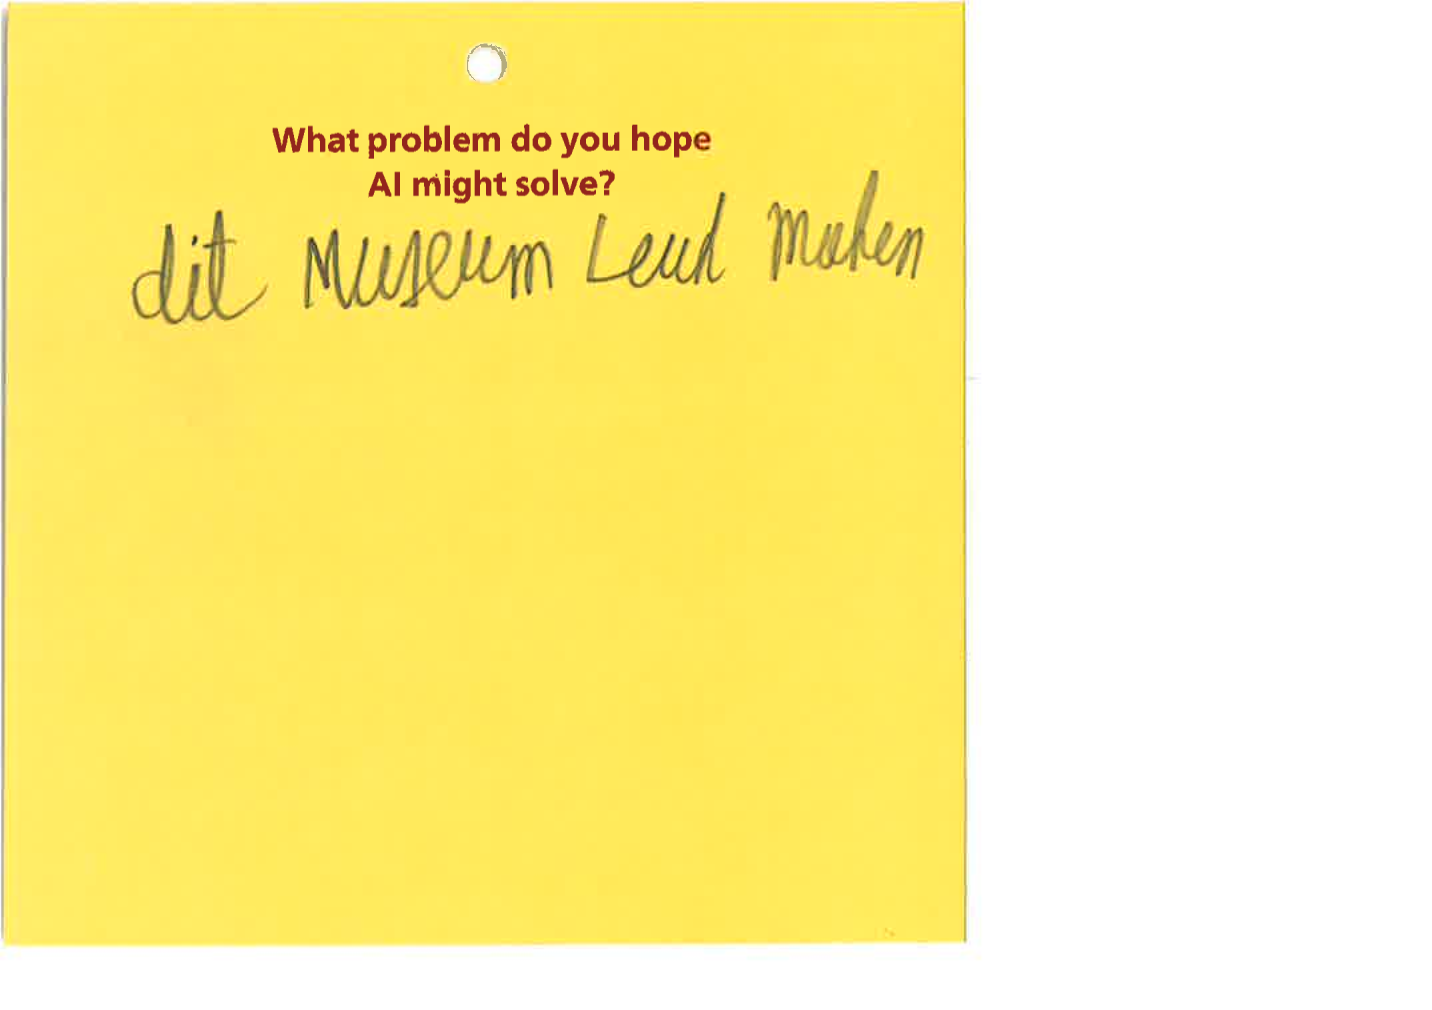 What problem do you hope
AI might solve?
dit Museum Leud maken